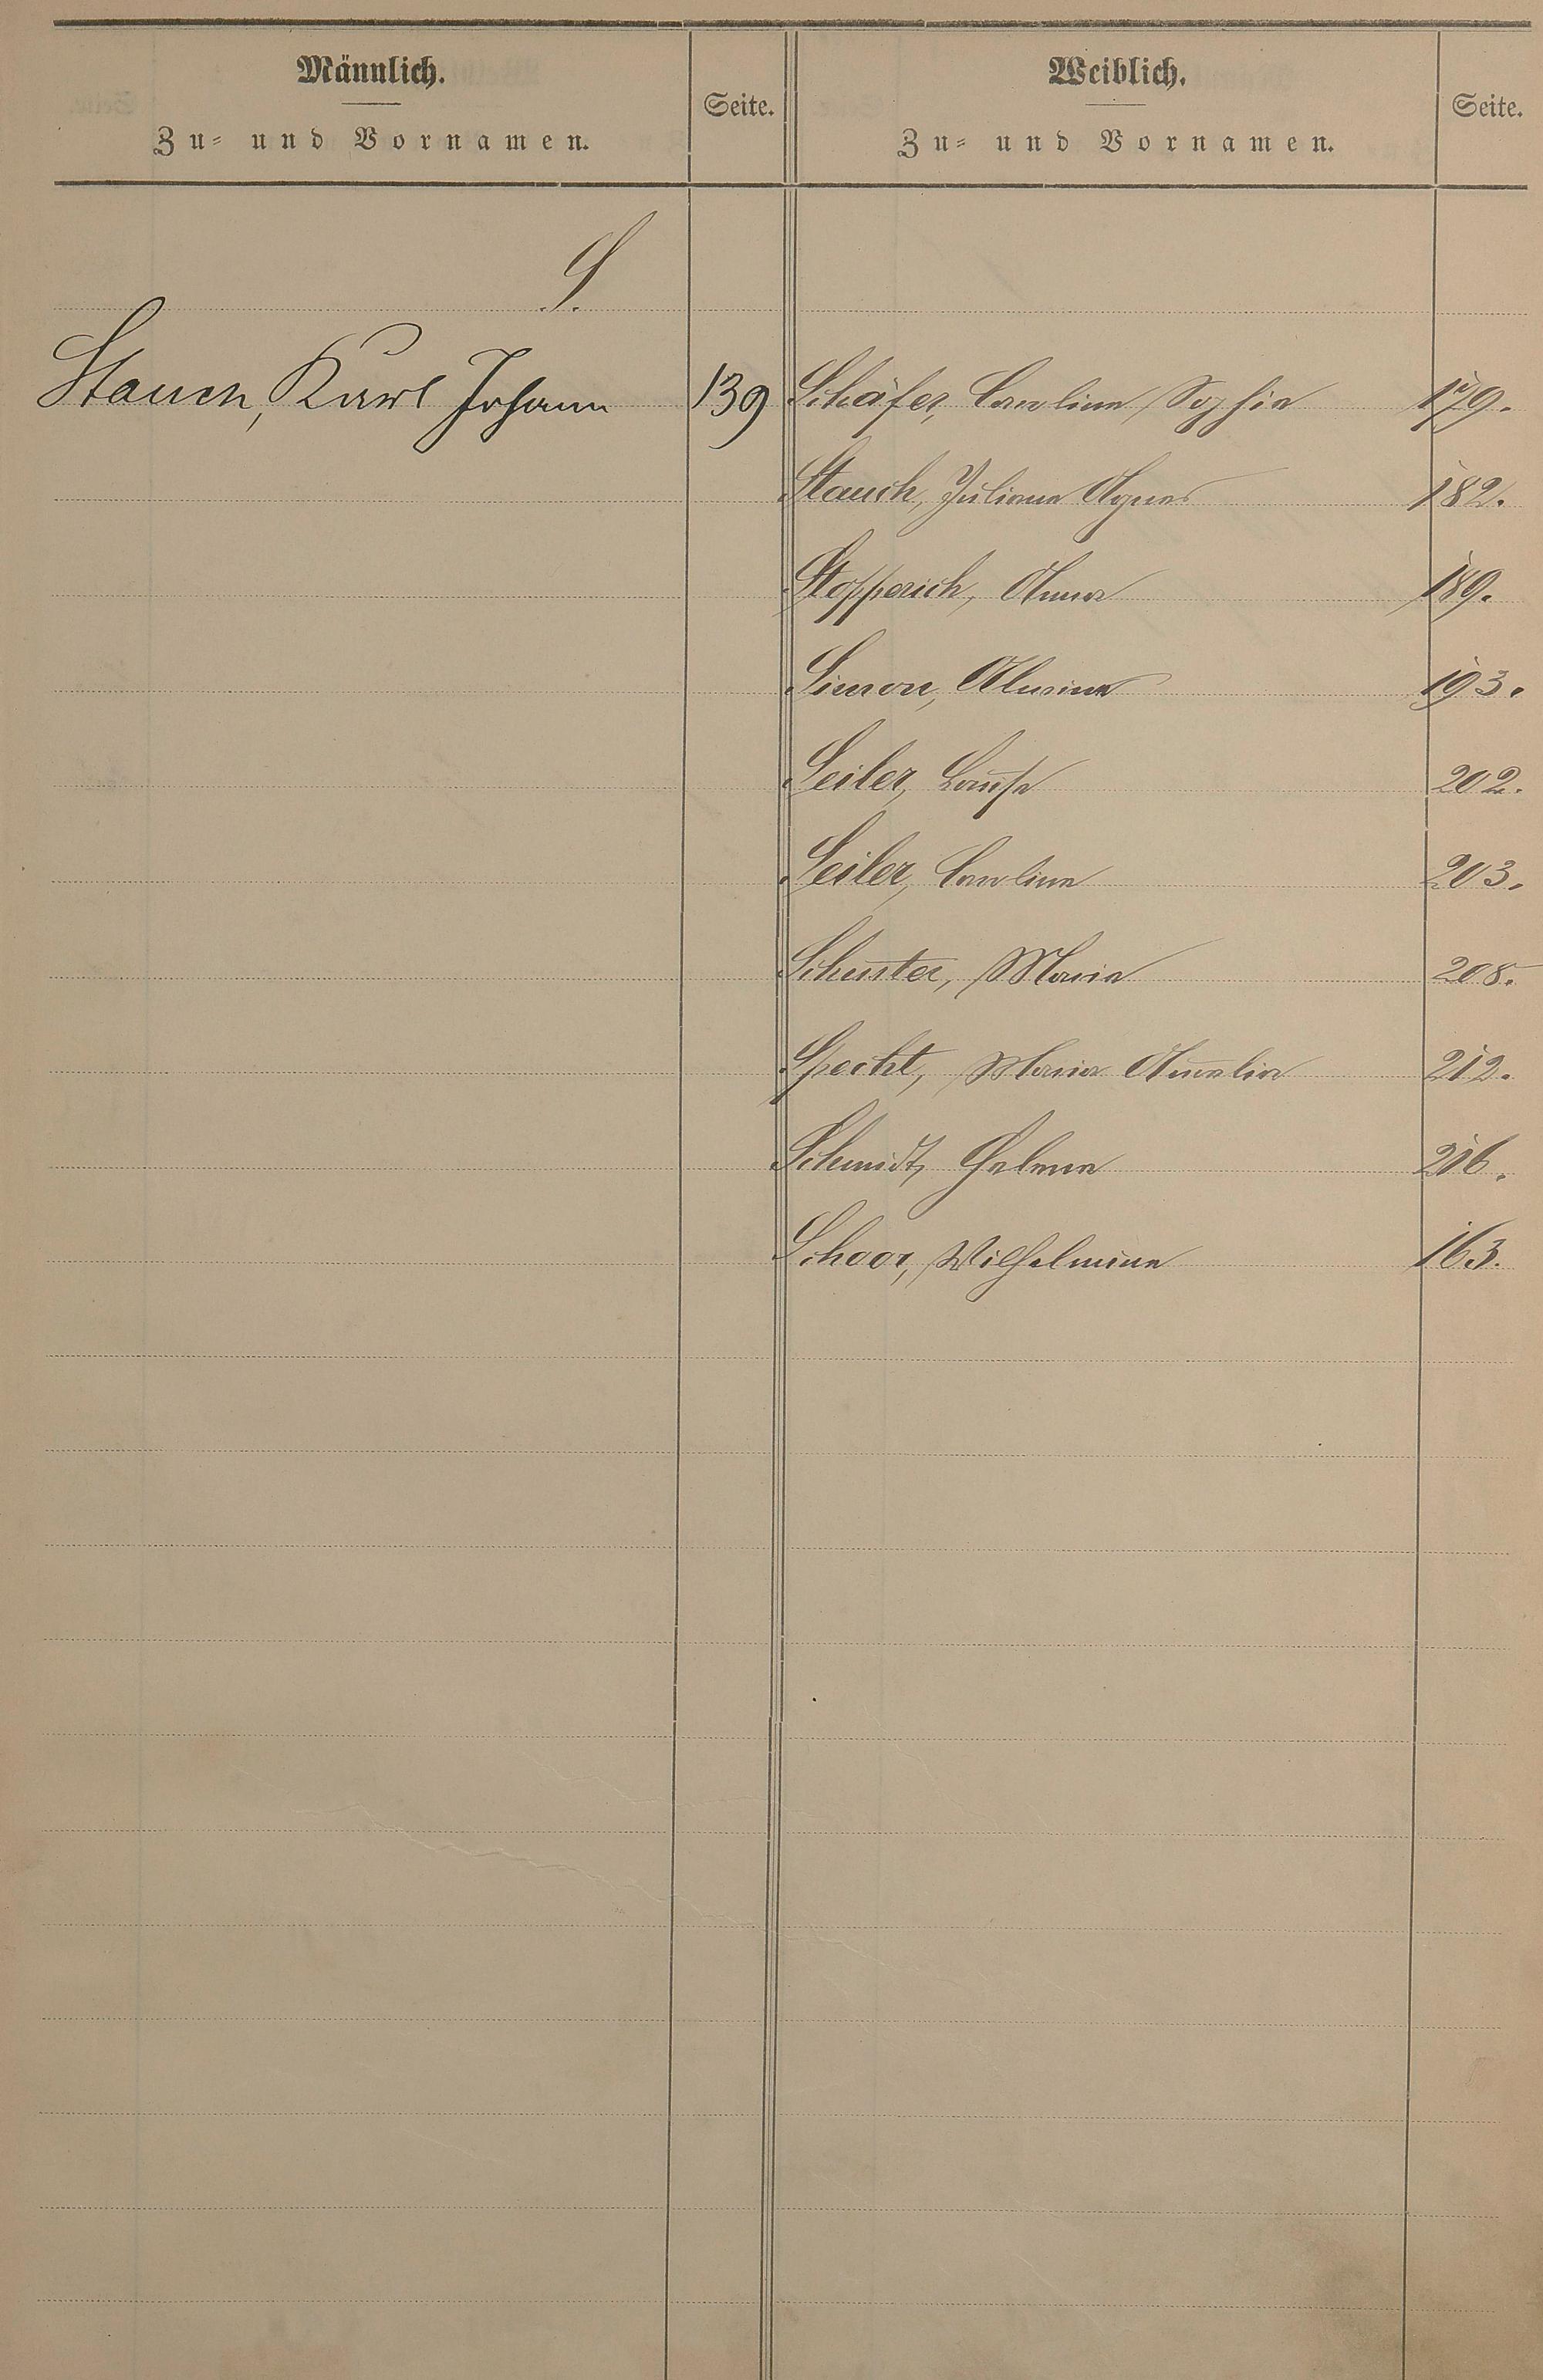 Männlich.
Zu- und Vornamen.
Seite.
Weiblich.
Zu- und Vornamen.
Seite.
S.
Stauch, Karl Johann 139
Schäfer, Caroline Sophie 179.
Stauch, Juliana Agnes 182.
Stopperich, Anna 189.
Simon, Alwine 193.
Seiler, Louise 202.
Seiler, Caroline 203.
Schuster, Maria 208.
Specht, Maria Amalia 212.
Schmidt, Helene 216.
Schoor, Wilhelmine 163.